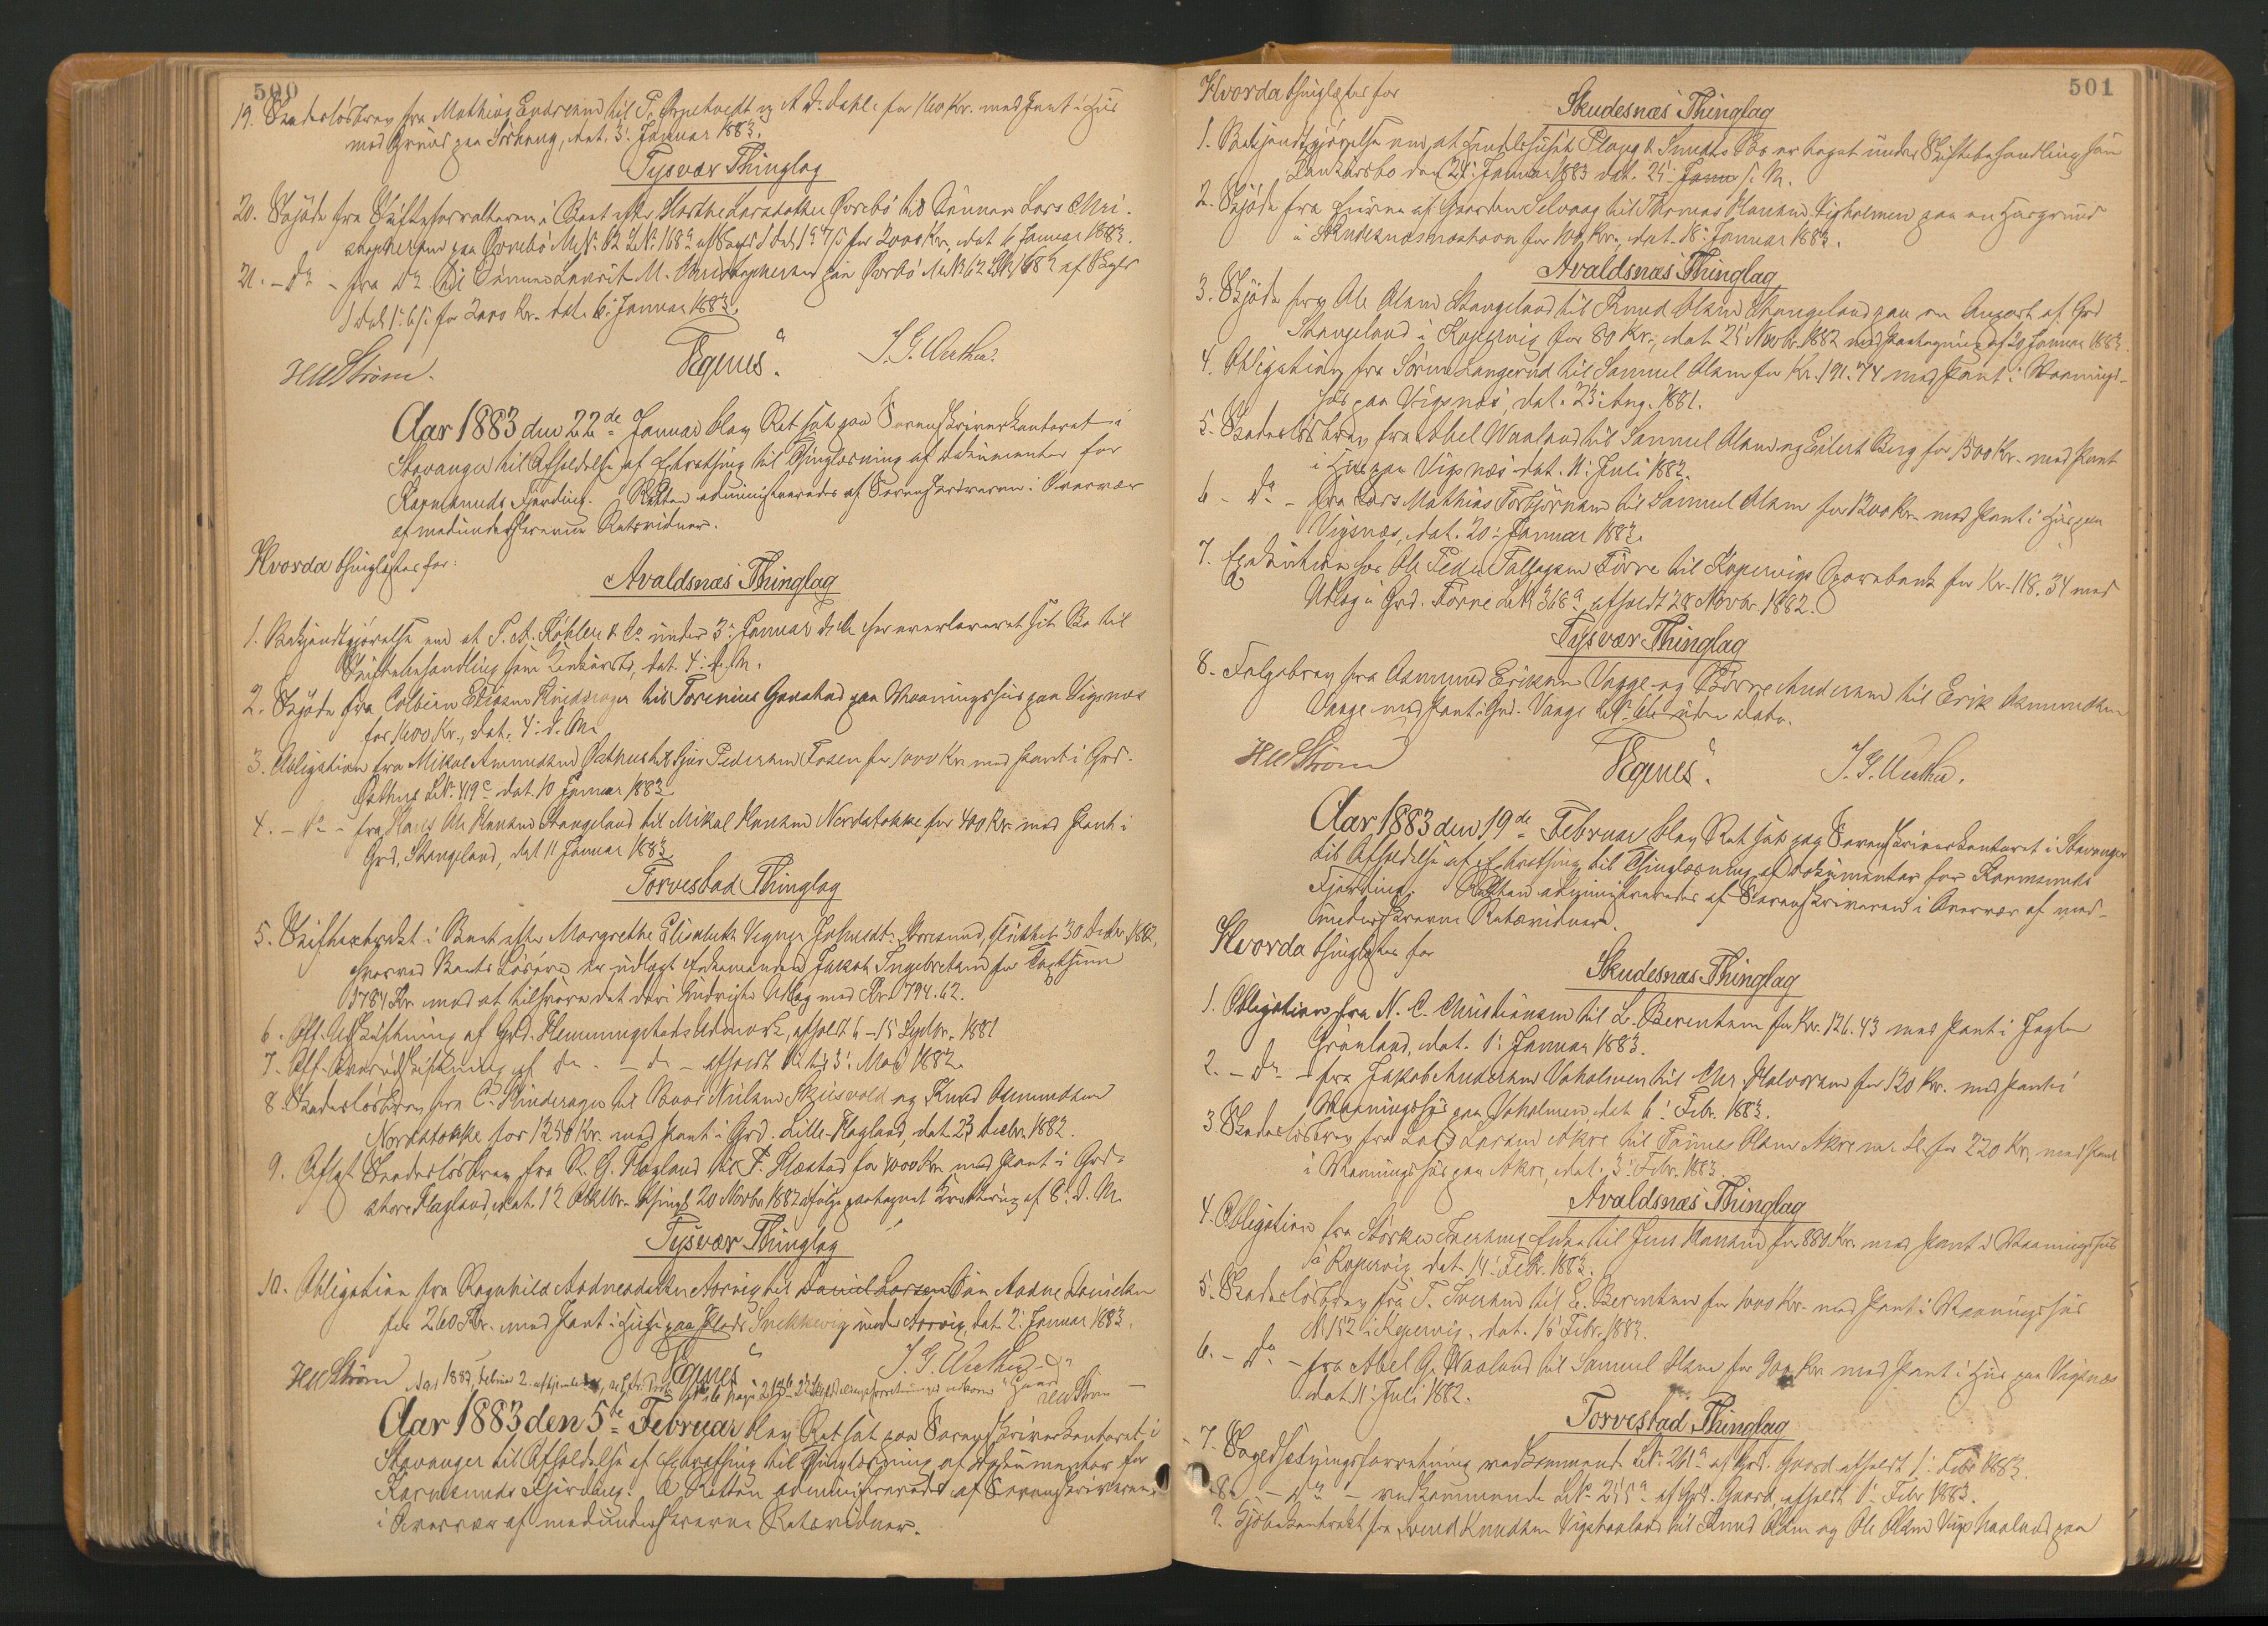 500
19. Skadesløsbrev fra Mathias Endresen til P. og A. D. Dahl for 160 Kr. med Pant i Hus
med Grund paa, dat. 3: Januar 1883.
Tysvær Thinglag
20. Skjøde fra Skifteforvalteren i Boet efter Marthe Larsdatter Øvrebø til Sønnen Lars Chri-
stophersen paa Øvrebø M.No. 62 L.No. 168a af Skyld for 2000 Kr., dat 6 Januar 1883.
21. - do - fra do til Sønnen Laurits M. Christophersen paa Øvrebø M.No 62 L.No 168 af Skyld
for 2000 Kr. dat. 6: Januar 1883.
HWStrøm.
Tegnes".
Aar 1883 den 22de Januar blev Ret sat paa Sorenskriverkontoret i
Stavanger til Afholdelse af Extrathing til Thinglæsning af Dokumenter for
Karmsunds Fjerding. Retten administreredes af Sorenskriveren i Overvær
af medunderskrevne Retsvidner.
Hvorda thinglæstes for:
Avaldsnæs Thinglag
1. Bekjendtgjørelse om at P. A. Køhler & Co under 3: Januar d. A. har overleveret sit Bo til
Skiftebehandling som Konkursbo, dat. 4: d. M.
2. Skjøde fra Colbein til Torenius Gaustad paa Vaaningshus paa Vigsnæs
for 1600 Kr., dat. 4: d. M.
3. Obligation fra Mikal Amundsen Østhus til Gjær Pedersen Fosen for 1000 Kr. med Pant i Grd.
Østhus L.No. 419c dat. 10 Januar 1883
4. - do - fra Hans Ole Hansen Stangeland til Mikal Hansen Nordstokke for 400 Kr. med Pant i
Grd. Stangeland, dat 11 Januar 1883
Torvestad Thinglag
5. Skifteextrakt i Boet efter Margrethe Elisabeth Vegner Johnsdtr., sluttet 30 Decbr. 1882,
hvorved Boets Løsøre er udlagt Enkemanden Jakob Ingebretsen for Taxtsum
1784 Kr. mod at tilsvare det deri Andre Udlag med Kr. 794.62.
6. Aff. Udskiftning af Grd. Udmark, afholdt 6-15 Septbr. 1881
7. Aff. Overudskiftning af do - do - afholdt til 3: Mai 1882.
8. Skadesløsbrev fra C. Kinderager til Boas Nielsen og Knud Asmundsen
Nordstokke for 1250 Kr. med Pant i Grd. Lille-Hagland, dat. 23 Decbr. 1882.
9. Aflyst Skadesløsbrev fra R. G. Hagland til F. for 4000 Kr. med Pant i Grd.
store Hagland, dat. 12 Oktbr. thingl. 20 Novbr. 1882 ifølge paategnet Kvittering af 8: d. M.
Tysvær Thinglag
10. Obligation fra Ragnhild Andreasdatter Aarvig til Daniel Larsen Søn Aadne Danielsen
for 260 Kr. med Pant i Hus paa Plads Snekkevig under Aarvig, dat. 2: Januar 1883.
HWStrøm
Tegnes"
Aar 1883 den 5te Februar blev Ret sat paa Sorenskriverkontoret i
Stavanger til Afholdelse af Extrathing til Thinglæsning af Dokumenter for
Karmsunds Fjerding. Retten administreredes af Sorenskriveren
i Overvær af medunderskrevne Retsvidner.
501
Hvorda thinglæstes for
Skudesnæs Thinglag
1. Bekjendtgjørelse om, at Handelshuset Plough & Sundes Bo er taget under Skiftebehandling som
Konkursbo den 24: Januar 1883 dat. 25: Janu s. M.
2. Skjøde fra Eierne af Gaarden Selvaag til Thomas Hansen Vigholmen paa en Husgrund
i Skudesnæshavn for 100 Kr., dat. 18: Januar 1883.
Avaldsnæs Thinglag
3. Skjøde fra Ole Olsen Stangeland til Knud Olsen Stangeland paa en Anpart af Grd
Stangeland i Kopervig for 80 Kr., dat 25 Novbr. 1882 med Paategning af 29 Januar 1883.
4. Obligation fra Søren Langerud til Samuel Olsen for Kr. 191.74 med Pant i Vaanings-
hus paa Vigsnæs, dat. 23: Aug. 1881.
5. Skadesløsbrev fra Abel Waaland til Samuel Olsen og Eilert Berg for 1500 Kr. med Pant
i Hus paa Vigsnæs dat. 11: Juli 1882.
6 - do - fra Lars Mathias Torbjørnsen til Samuel Olsen for 1200 Kr. med Pant i Hus paa
Vigsnæs, dat. 20: Januar 1883.
7. Exekution hos Ole Peder Tollagsen Førre til Kopervigs Sparebank for Kr. 118.34 med
Udlæg i Grd. Førre L.No 368a, afholdt 28 Novbr. 1882.
Tysvær Thinglag
8. Følgebrev fra Asmund Eriksen Vaage og Børre Andersen til Erik Asmundsen
Vaage med Pant i Grd. Vaage L.No. uden Dato.
HWStrøm
Tegnes".
Aar 1883 den 19de Februar blev Ret sat paa Sorenskriverkontoret i Stavanger
til Afholdelse af Extrathing til Thinglæsning af Dokumenter for Karmsunds
Fjerding. Retten administreredes af Sorenskriveren i Overvær af med-
underskrevne Retsvidner.
Hvorda thinglæstes for
Skudesnæs Thinglag
1. Obligation fra N. C. Christiansen til L. Berentsen for Kr. 126.43 med Pant i Jagten
Grønland, dat. 1: Januar 1883.
2. - do - fra Jakob Andersen Vaholmen til Chr. Halvorsen for 120 Kr. med Pant i
Vaaningshus paa Vaholmen dat. 6: Febr. 1883.
3 Skadesløsbrev fra Lars Larsen Akre til Tønnes Olsen Akre m. fl. for 220 Kr. med Pant
i Vaaningshus paa Akre, dat. 3: Febr. 1883.
Avaldsnæs Thinglag
4. Obligation fra Størker Iversens Enke til Jens Hansen for 880 Kr. med Pant i Vaaningshus
i Kopervig dat. 14: Febr. 1883.
5. Skadesløsbrev fra T. Iversen til L. Berentsen for 1000 Kr. med Pant i Vaaningshus
No 152 i Kopervig. dat. 15 Febr. 1883.
6. - do - fra Abel G. Waaland til Samuel Olsen for 900 Kr. med Pant i Hus paa Vigsnæs
dat. 11: Juli 1882.
Torvestad Thinglag
7. Skyldsætningsforretning vedkommende L.No. 261a af Grd. Gaard afholdt 1: Febr 1883.
8. - do - vedkommende L.No. 255a af Grd. Gaard, afholdt 1: Febr 1883.
9. Kjøbekontrakt fra Svend Knudsen Vigshaaland til Knud Olsen og Ole Olsen Vigshaaland paa